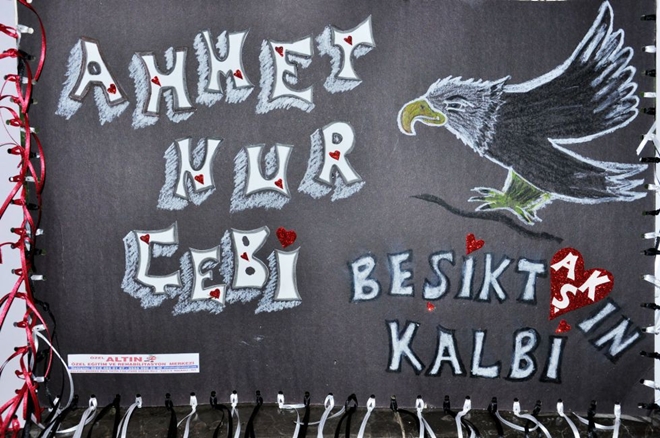 AHMET
NUR
ÇEBİ
BEŞİKTAŞKIN
KALBİ
ÖZEL ALTIN
ÖZEL EĞİTİM VE REHABİLİTASYON MERKEZİ